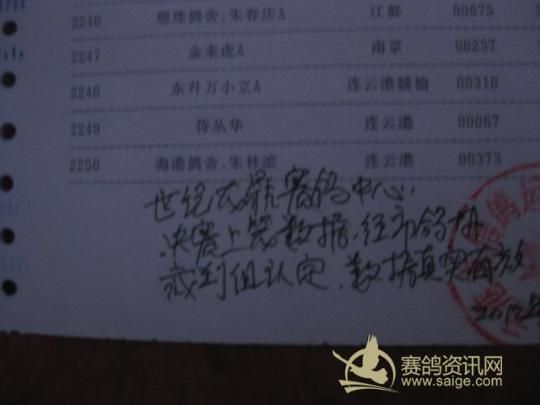 2246 明珠鸽舍,朱春庆A 江都 00675
2247 金来虎A 南京 00237
2248 东升万小立A 连云港赣榆 00310
2249 侍丛华 连云港 00067
2250 海港鸽舍,朱林滨 连云港 00373
世纪大鼎赛鸽中心
决赛上笼数据,经市鸽协
裁判组认定,数据真实有效
赛鸽资讯网
www.saige.com